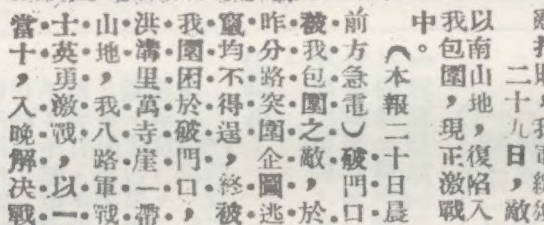 二十九日，敵
以南山地，復陷入
我包圍，現正激戰
中。
（本報二十日晨
前方急電）破門口
被我包圍之敵，於
昨分路突圍企圖逃
竄均不得逞，終被
我圍困於破門口，
洪溝里萬寺崖一帶
山地，我八路軍戰
士英勇激戰，以一
當十，入晚解決戰